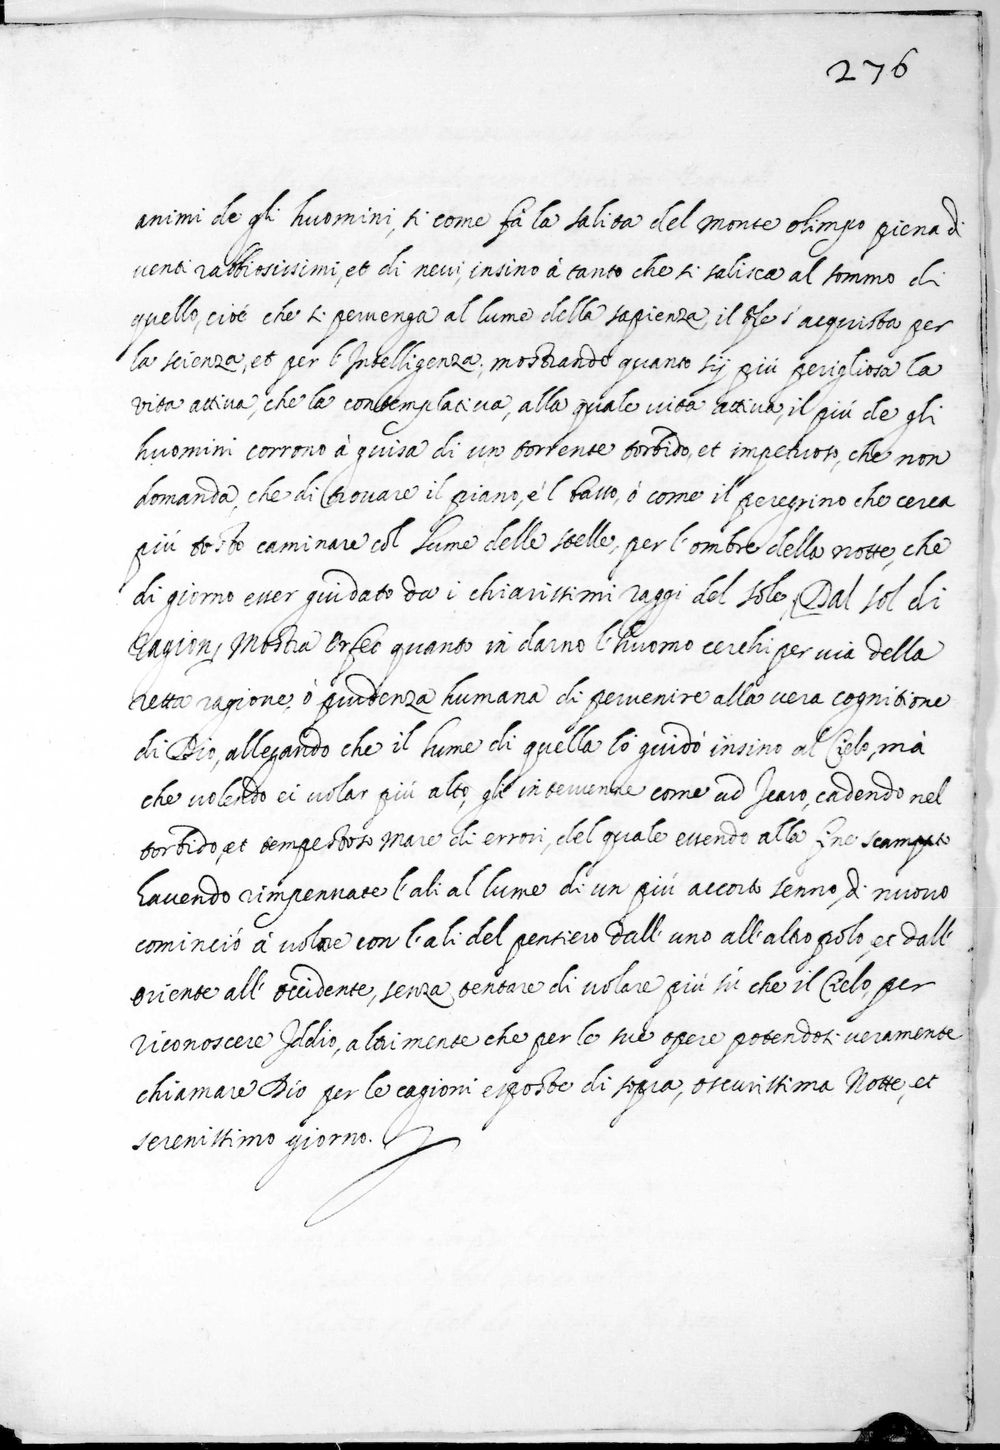 276
animi de gli huomini, si come fà la salita del monte olimpo piena di
venti rabbiosissimi, et di nevi, insino à tanto che si salisca al sommo di
quello, cioè che si pervenga al lume della sapienza, il che s'acquista per
la scienza, et per l'Intelligenza, mostrando quanto sij più perigliosa la
vita attiva, che la contemplativa, alla quale vita attiva, il più de gli
huomini corrono à guisa di un torrente torbido, et impetuoso, che non
domanda, che di trovare il piano, e'l basso, ò come il peregrino che cerca
più tosto caminare col lume delle stelle, per l'ombre della notte, che
di giorno esser guidato da i chiarissimi raggi del sole, Dal sol di
ragion, Mostra Orfeo quanto in darno l'huomo cerchi per via della
retta ragione, ò prudenza humana di pervenire alla vera cognitione
di Dio, allegando che il lume di quella lo guidò insino al Cielo, mà
che volendo ei volar più alto, gli intervenne come ad Icaro, cadendo nel
torbido, et tempestoso Mare di errori, del quale essendo alla fine scampato
havendo rimpennate l'ali al lume di un più accorto senno, di nuovo
cominciò à volare con l'ali del pensiero dall'uno all'altro polo, et dall'
oriente all'occidente, senza tentare di volare più sù che il Cielo, per
riconoscere Iddio, altrimente che per le sue opere potendosi veramente
chiamare Dio per le cagioni esposte di sopra, oscurissima Notte, et
serenissimo giorno.